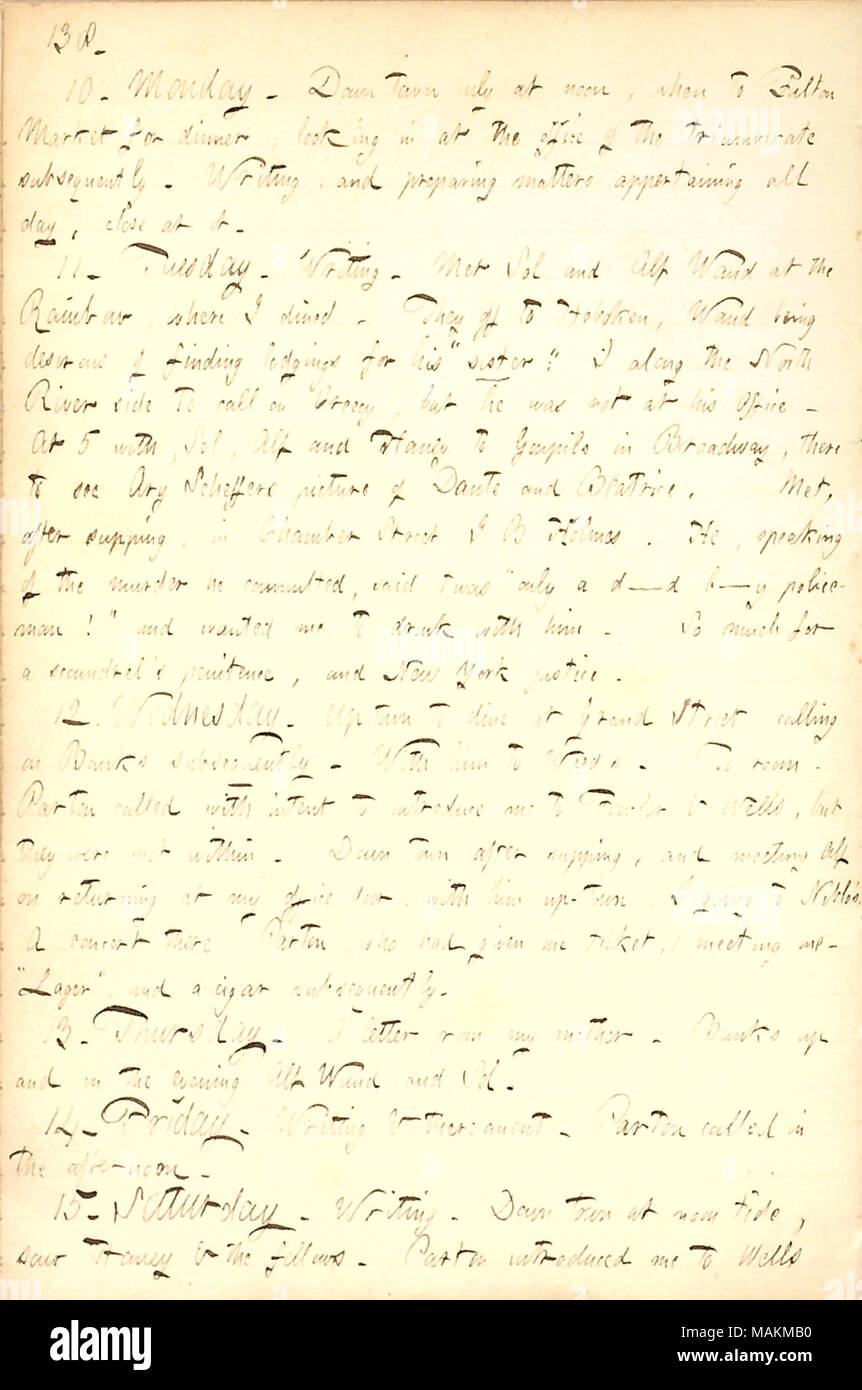 138.
10. Monday. Down town only at noon, when to Fulton
Market for dinner, looking in at the office of the triumvirate
subsequently. Writing, and preparing matters appertaining all
day, close at it.
11. Tuesday. Writing. Met Sol and Alf Waud at the
Rainbow, where I dined. They off to Hoboken, Waud being
desirous of finding lodgings for his "sister"; I along the North
River side to call on Creecy, but he was not at his office.
At 5 with, Sol, Alf and Haney to Goupils in Broadway, there
to see Ary Scheffers picture of Dante and Beatrice. Met,
after supping, in Chamber Street J B Holmes. He, speaking
of the murder he committed, said twas "only a d—d b—y police-
man!" and wanted me to drink with him. So much for
a scoundrel's penitence, and New York justice.
12. Wednesday. Up town to dine at Grand Street calling
on Banks subsequently. With him to Wood's. To room.
Parton called with intent to introduce me to Fowler & Wells, but
they were not within. Down town after supping, and meeting Alf
on returning at my office door, with him up-town, I going to Niblo's.
A concert there Parton, who had given me ticket, meeting me.
"Lager", and a cigar subsequently.
13. Thursday. A letter from my mother. Banks up
and in the evening Alf Waud and Sol.
14. Friday. Writing & thereanent. Parton called in
the afternoon.
15. Saturday. Writing. Down town at noon tide,
saw Haney & the fellows. Parton introduced me to Wells
alamy
Image ID: MAKMB0
www.alamy.com